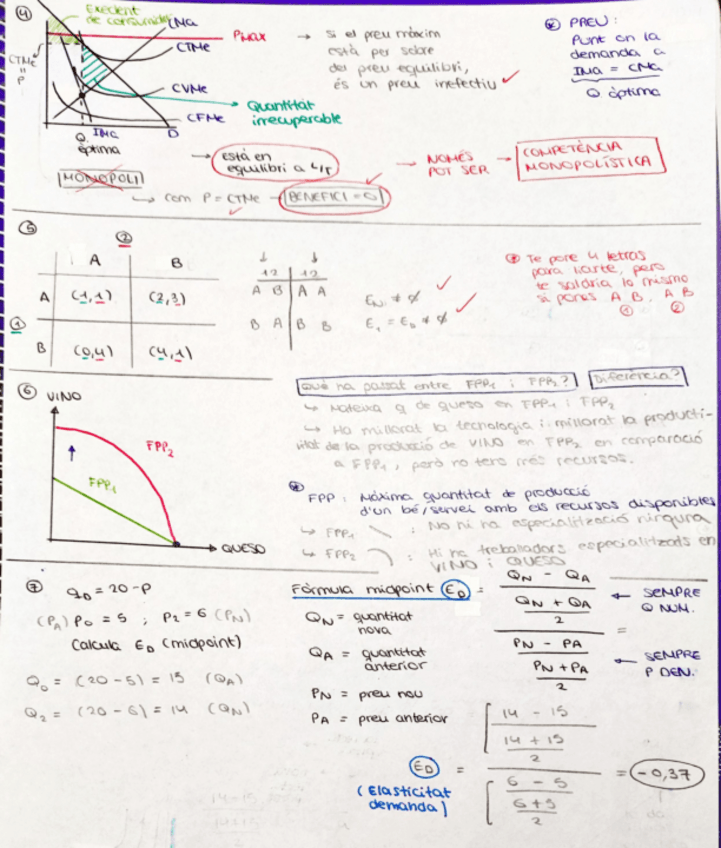 ④
Excedent de consumidor
CMa
CTMe
PMAX
CTMe
=
P
CVMe
Quantitat irrecuperable
CFMe
Q òptima
IMa
D
→ Si el preu màxim
està per sobre
del preu equilibri,
és un preu inefectiu ✓
* PREU:
Punt on la
demanda a
IMa = CMa
Q òptima
MONOPOLI
→ està en
equilibri a L/T
→ NOMÉS
POT SER
→ COMPETÈNCIA
MONOPOLÍSTICA
↳ com P = CTMe → BENEFICI = 0
⑤
②
A B
① A (1,1) (2,3)
B (0,4) (4,1)
↓ ↓
1 2 1 2
A B A A
B A B B
EN: ≠ ∅ ✓
E1 = ED ≠ ∅ ✓
* Te pone 4 letras
para liarte, pero
te saldría lo mismo
si pones A B, A B
① ②
⑥
VINO
FPP2
FPP1
QUESO
Què ha passat entre FPP1 i FPP2? Diferència?
↳ Mateixa q de queso en FPP1 i FPP2
↳ Ha millorat la tecnologia i millorat la producti-
vitat de la producció de VINO en FPP2 en comparació
a FPP1, però no tens més recursos.
* FPP: Màxima quantitat de producció
d'un bé/servei amb els recursos disponibles
↳ FPP1 : No hi ha especialització ninguna
↳ FPP2 : Hi ha treballadors especialitzats en
VINO i QUESO
⑦ qD = 20 - P
(PA) P0 = 5 ; P2 = 6 (PN)
Calcula ED (midpoint)
Q0 = (20 - 5) = 15 (QA)
Q2 = (20 - 6) = 14 (QN)
Fórmula midpoint ED =
QN - QA
QN + QA
2
← SEMPRE
Q NUM.
PN - PA
PN + PA
2
← SEMPRE
P DEN.
=
QN = quantitat
nova
QA = quantitat
anterior
PN = preu nou
PA = preu anterior
ED
(Elasticitat
demanda)
=
14 - 15
14 + 15
2
6 - 5
6 + 5
2
= -0,37